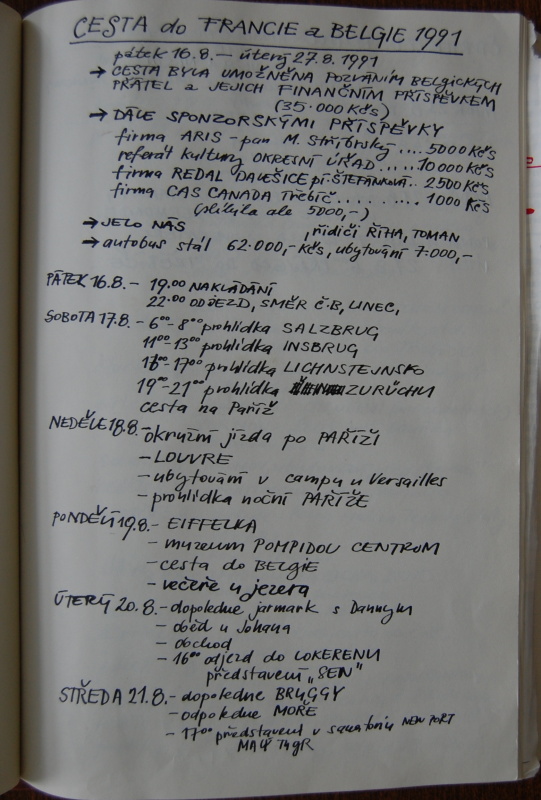 CESTA do FRANCIE a BELGIE 1991
pátek 16.8. — úterý 27.8.1991
→ CESTA BYLA UMOŽNĚNA POZVÁNÍM BELGICKÝCH
PŘÁTEL a JEJICH FINANČNÍM PŘÍSPĚVKEM
(35.000 Kčs)
→ DÁLE SPONZORSKÝMI PŘÍSPĚVKY
firma ARIS - pan M. Stříbrský .... 5000 Kčs
referát kultury OKRESNÍ ÚŘAD ..... 10 000 Kčs
firma REDAL DALEŠICE pí ŠTEFÁNKOVÁ .. 2500 Kčs
firma CAS CANADA Třebíč ......... 1000 Kčs
(slíbila ale 5000,-)
→ JELO NÁS , řidiči ŘÍHA, TOMAN
→ autobus stál 62.000,- Kčs, ubytování 7.000,-
PÁTEK 16.8. - 19.00 NAKLÁDÁNÍ
22.00 ODJEZD, SMĚR Č.B, LINEC,
SOBOTA 17.8. - 6⁰⁰-8⁰⁰ prohlídka SALZBRUG
11⁰⁰-13⁰⁰ prohlídka INSBRUG
16⁰⁰-17⁰⁰ prohlídka LICHNSTEJNSKO
19⁰⁰-21⁰⁰ prohlídka ZURÜCHU
cesta na Paříž
NEDĚLE 18.8. - okružní jízda po PAŘÍŽI
- LOUVRE
- ubytování v campu u Versailles
- prohlídka noční PAŘÍŽE
PONDĚLÍ 19.8. - EIFFELKA
- muzeum POMPIDOU CENTROM
- cesta do BELGIE
- večeře u jezera
ÚTERÝ 20.8. - dopoledne jarmark s Dannym
- oběd u Johana
- obchod
- 16⁰⁰ odjezd do LOKERENU
představení „SEN"
STŘEDA 21.8. - dopoledne BRUGGY
- odpoledne MOŘE
- 17⁰⁰ představení v sanatoriu NEW PORT
MALÝ TYGR